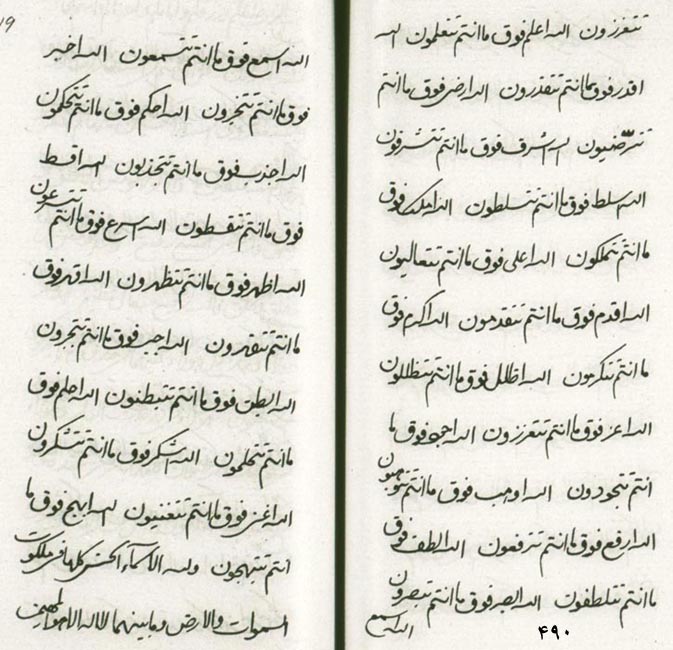 تتعززون الله اعلم فوق ما انتم تتعلمون الله
اقدر فوق ما انتم تتقدرون الله ارضى فوق ما انتم
تترضيون الله اشرف فوق ما انتم تتشرفون
الله اسلط فوق ما انتم تتسلطون الله املك فوق
ما انتم تتملكون الله اعلى فوق ما انتم تتعاليون
الله اقدم فوق ما انتم تتقدمون الله اكرم فوق
ما انتم تتكرمون الله اظلل فوق ما انتم تتظللون
الله اعز فوق ما انتم تتعززون الله اجود فوق ما
انتم تتجودون الله اوهب فوق ما انتم تتوهبون
الله ارفع فوق ما انتم تترفعون الله الطف فوق
ما انتم تتلطفون الله ابصر فوق ما انتم تتبصرون
الله اسمع
۴۹۰
الله اسمع فوق ما انتم تتسمعون الله اخبر
فوق ما انتم تتخبرون الله احكم فوق ما انتم تتحكمون
الله اجذب فوق ما انتم تتجذبون الله اقسط
فوق ما انتم تتقسطون الله اسرع فوق ما انتم تتسرعون
الله اظهر فوق ما انتم تتظهرون الله اقهر فوق
ما انتم تتقهرون الله اجبر فوق ما انتم تتجبرون
الله ابطن فوق ما انتم تتبطنون الله احلم فوق
ما انتم تتحلمون الله اشكر فوق ما انتم تتشكرون
الله اغنى فوق ما انتم تتغنيون الله ابهج فوق ما
انتم تتبهجون ولله الاسمآء الحسنى كلها في ملكوت
السموات والارض وما بينهما لا اله الا هو المهيمن